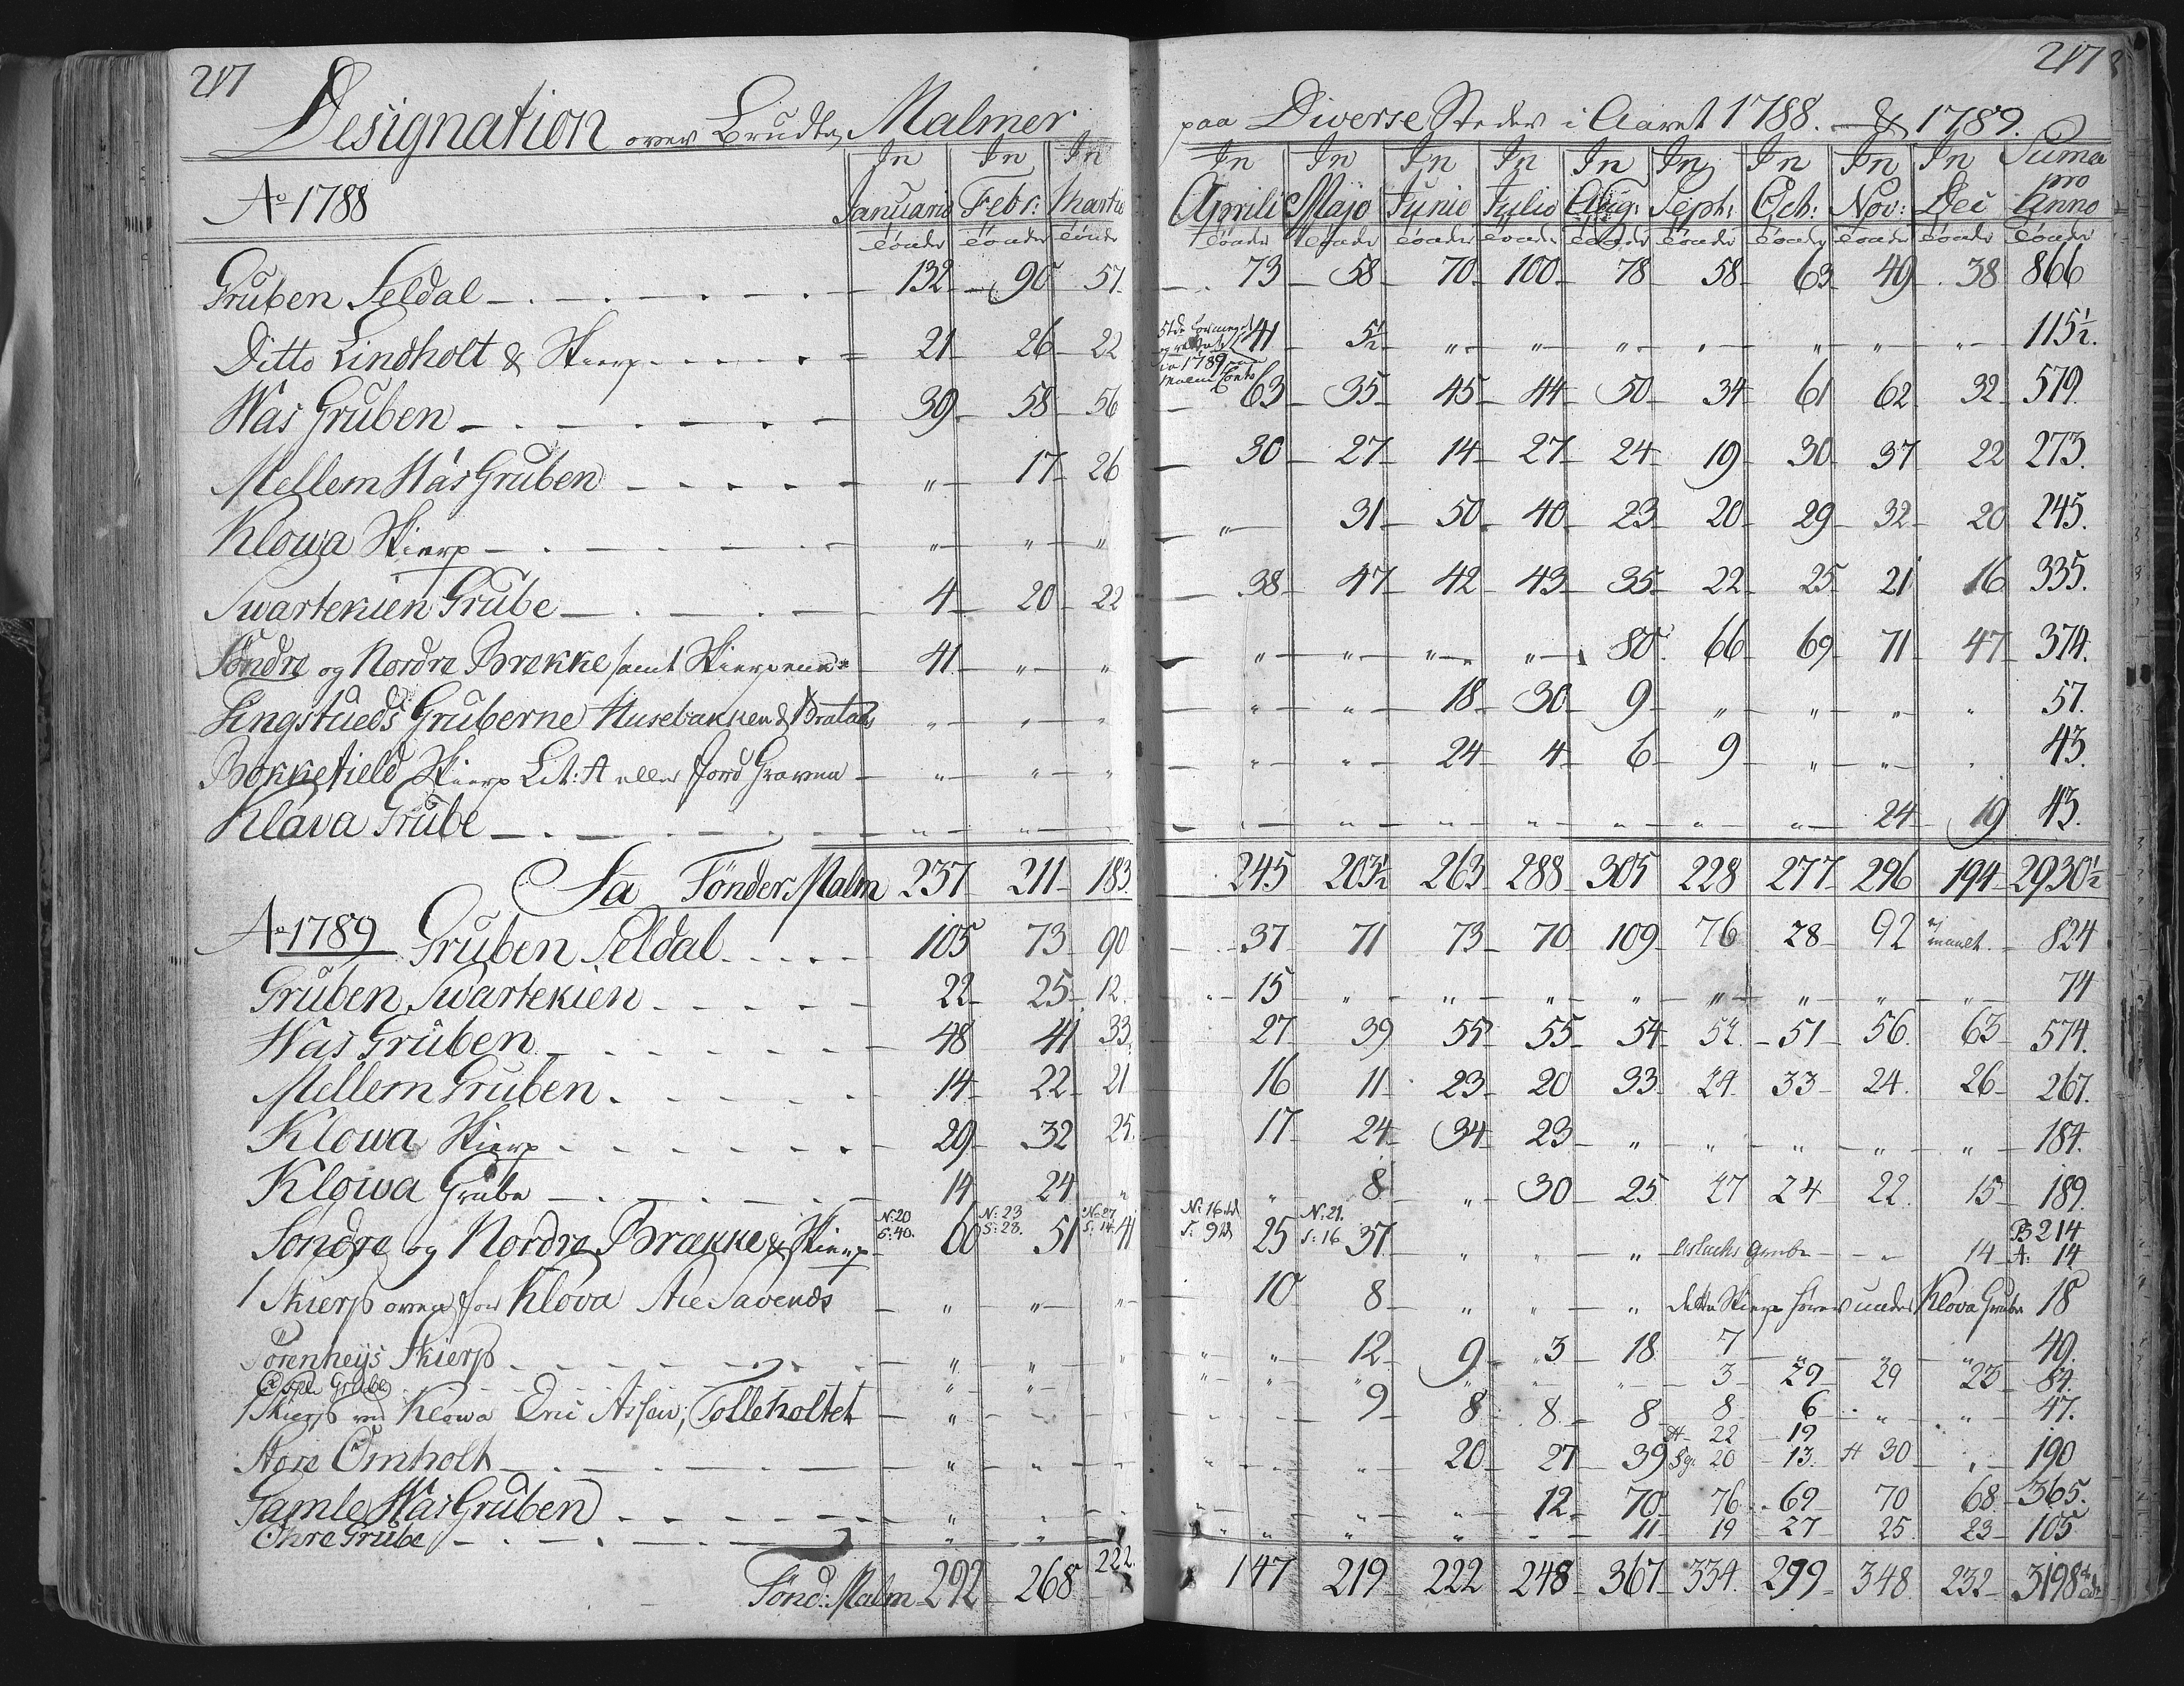 217
Designation over Brudte Malmer
Ao 1788 In Januario In Febr: In Martio
Tönder Tönder Tönder
Gruben Seldal 132 90 57
Ditto Lindholt & Skierp 21 26 22
Was Gruben 39 58 56
Mellem Wås Gruben " 17 26
Klowa Skierp " " "
Swartekien Grube 4 20 22
Söndre og Nordre Brekke samt Skierpene 41 " "
Lingstueds Gruberne Husebakken & Bratas " " "
Bokkefield Skierp Lit: A eller Jord Graven " " "
Klåva Grube " " "
Sa Tönder Malm 237 211 183
Ao 1789 Gruben Seldal 105 73 90
Gruben Swartekien 22 25 12
Wås Gruben 48 41 33
Mellem Gruben 14 22 21
Klowa Skierp 29 32 25
Klowa Grube 14 24 "
Söndre og Nordre Brække & Skierp N: 20 S: 40. 60 N: 23 S: 28. 51 N: 27 S: 14. 41
1 Skierp oven for Klova " " "
Sörenheys Skierp " " "
Grube " "
1 Skierp ved Klowa Tolleholtet "
Store Omholt " " "
Gamle Wås Gruben "
Ohre Grube " "
Tönd: Malm 292 268 222.
217 8
paa Diverse Steder i Aaret 1788. & 1789.
In Aprili In Majo In Junio In Julio In Aug: In Sept: In Oct: In Nov: In Dec Suma pro Anno
Tönder Tönder Tönder Tönder Tönder Tönder Tönder Tönder Tönder Tönder
73 58 70 100 78 58 63 49 38 866
41 5½ " " " " " " " 115½.
63 35 45 44 50 34 61 62 32 579.
30 27 14 27 24 19 30 37 22 273.
" 31 50 40 23 20 29 32 20 245.
38 47 42 43 35 22 25 21 16 335.
" " " " 80 66 69 71 47 374.
" " 18 30 9 " " " " 57.
" " 24 4 6 9 " " " 43.
" " " " " " " 24 19 43.
245 203½ 263 288 305 228 277 296 194 2930½
37 71 73 70 109 76 28 92 ej maalt. 824
15 " " " " " " " " 74
27 39 55 55 54 52. 51 56. 63 574.
16 11 23 20 33 24. 33 24. 26 267.
17 24 34 23 " " " " " 184.
" 8 " 30 25 27 24 22. 15 189.
N: 16 S: 9 25 N: 21. S: 16 37 " " " Aslachs Grube " 14 B 214 A: 14
10 8 " " " dette Skierp hörer under Klova Grube 18
" 12 9 3 18 7 " " " 49.
" " " " " 3 29 29 23 84.
9 8 8 8 8 6 " " 47.
20 27 39 A 22 Sgr 20 19 13. A 30 " 190
" " " 12 70 76 69 70 68 365.
" " " " 11 19 27 25 23 105
147 219 222 248 367 334. 299 348 232 3198